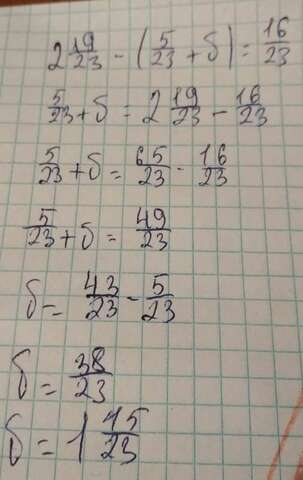 2 19/23 - (5/23 + δ) = 16/23
5/23 + δ = 2 19/23 - 16/23
5/23 + δ = 65/23 - 16/23
5/23 + δ = 49/23
δ = 43/23 - 5/23
δ = 38/23
δ = 1 15/23